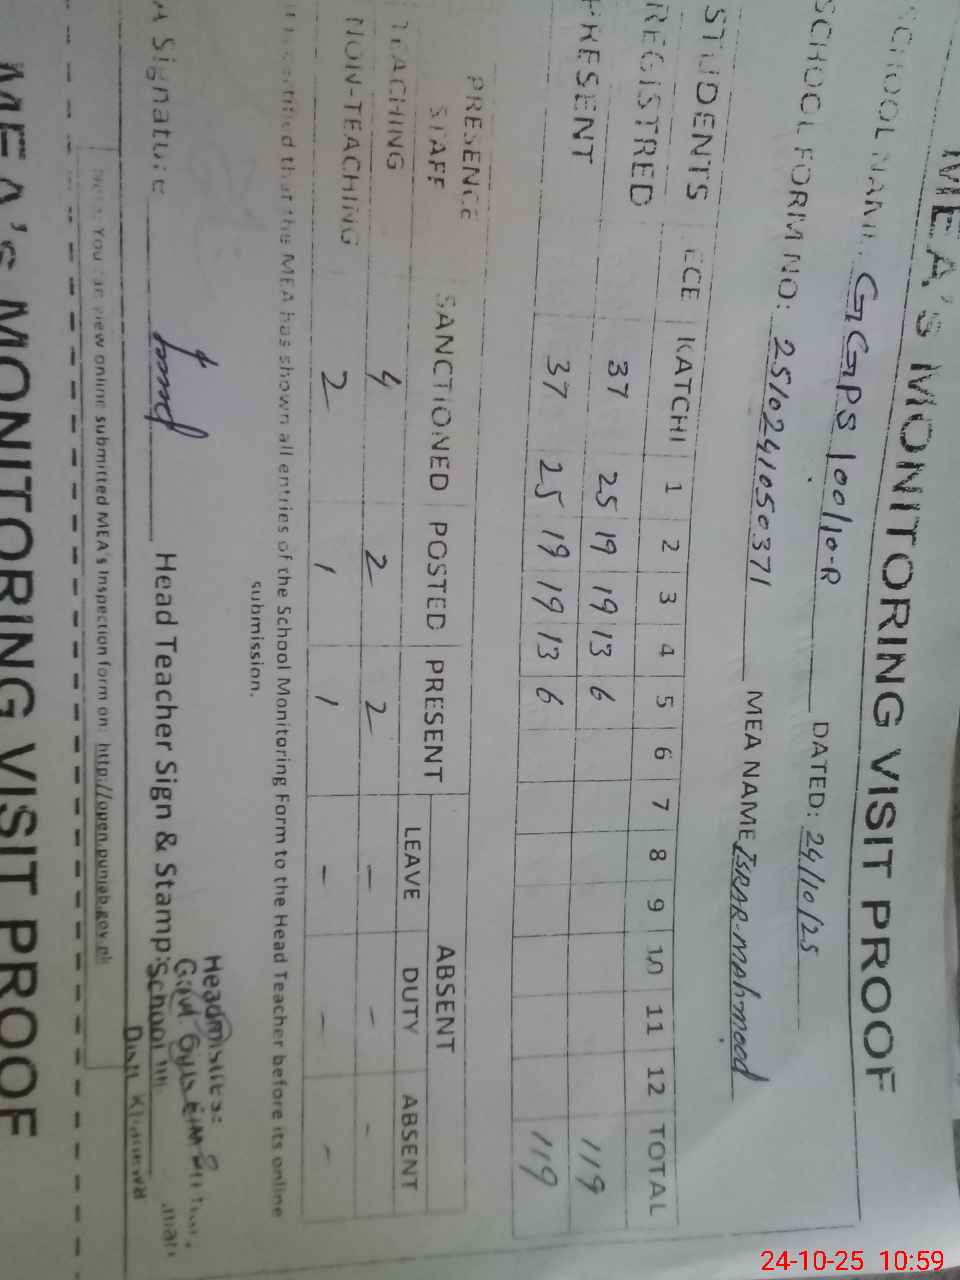 MEA's MONITORING VISIT PROOF
SCHOOL NAME: GGPS 100/10-R DATED: 24/10/25
SCHOOL FORM NO: 2510241050371 MEA NAME ISRAR-MAhmood
STUDENTS ECE KATCHI 1 2 3 4 5 6 7 8 9 10 11 12 TOTAL
REGISTRED 37 25 19 19 13 6 119
PRESENT 37 25 19 19 13 6 119
PRESENCE STAFF SANCTIONED POSTED PRESENT ABSENT
LEAVE DUTY ABSENT
TEACHING 4 2 2 - - -
NON-TEACHING 2 1 1 - - -
certified that the MEA has shown all entries of the School Monitoring Form to the Head Teacher before its online
submission.
A Signature Head Teacher Sign & Stamp:
Headmistress
Govt. Girls
School
Distt. Khanewal
Note: You can view online submitted MEA's Inspection form on: http://open.punjab.gov.pk
MEA's MONITORING VISIT PROOF
24-10-25 10:59